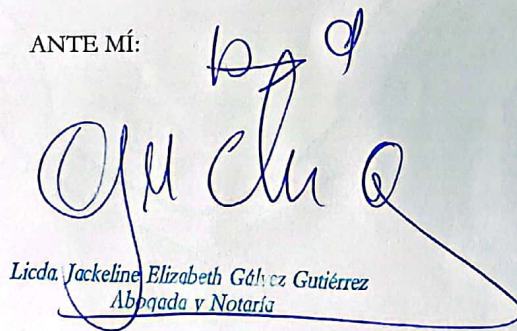 ANTE MÍ:
Licda. Jackeline Elizabeth Gálvez Gutiérrez
Abogada y Notaria